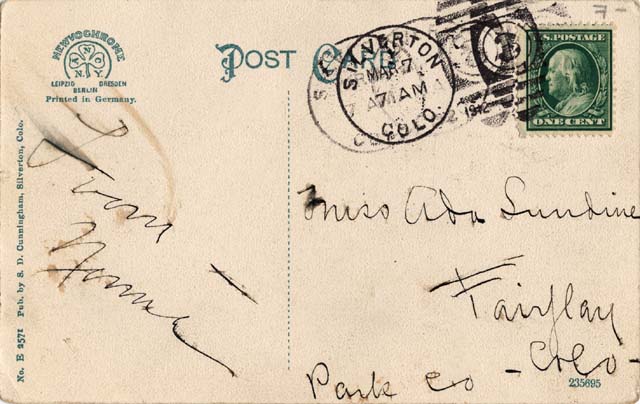 NEWVOCHROME
A N C
N.Y.
LEIPZIG DRESDEN
BERLIN
Printed in Germany.
POST CARD
SILVERTON
MAR 7
7 AM
COLO.
1912
U.S. POSTAGE
ONE CENT
From
Miss Ada Sundine
Fairplay
Park Co - Colo -
235695
No. E 2571 Pub. by S. D. Cunningham, Silverton, Colo.